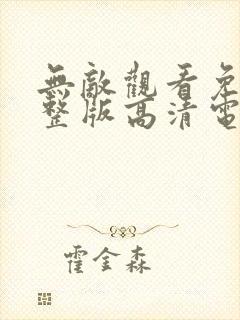 無敵觀看免
整版高清電
霍金森